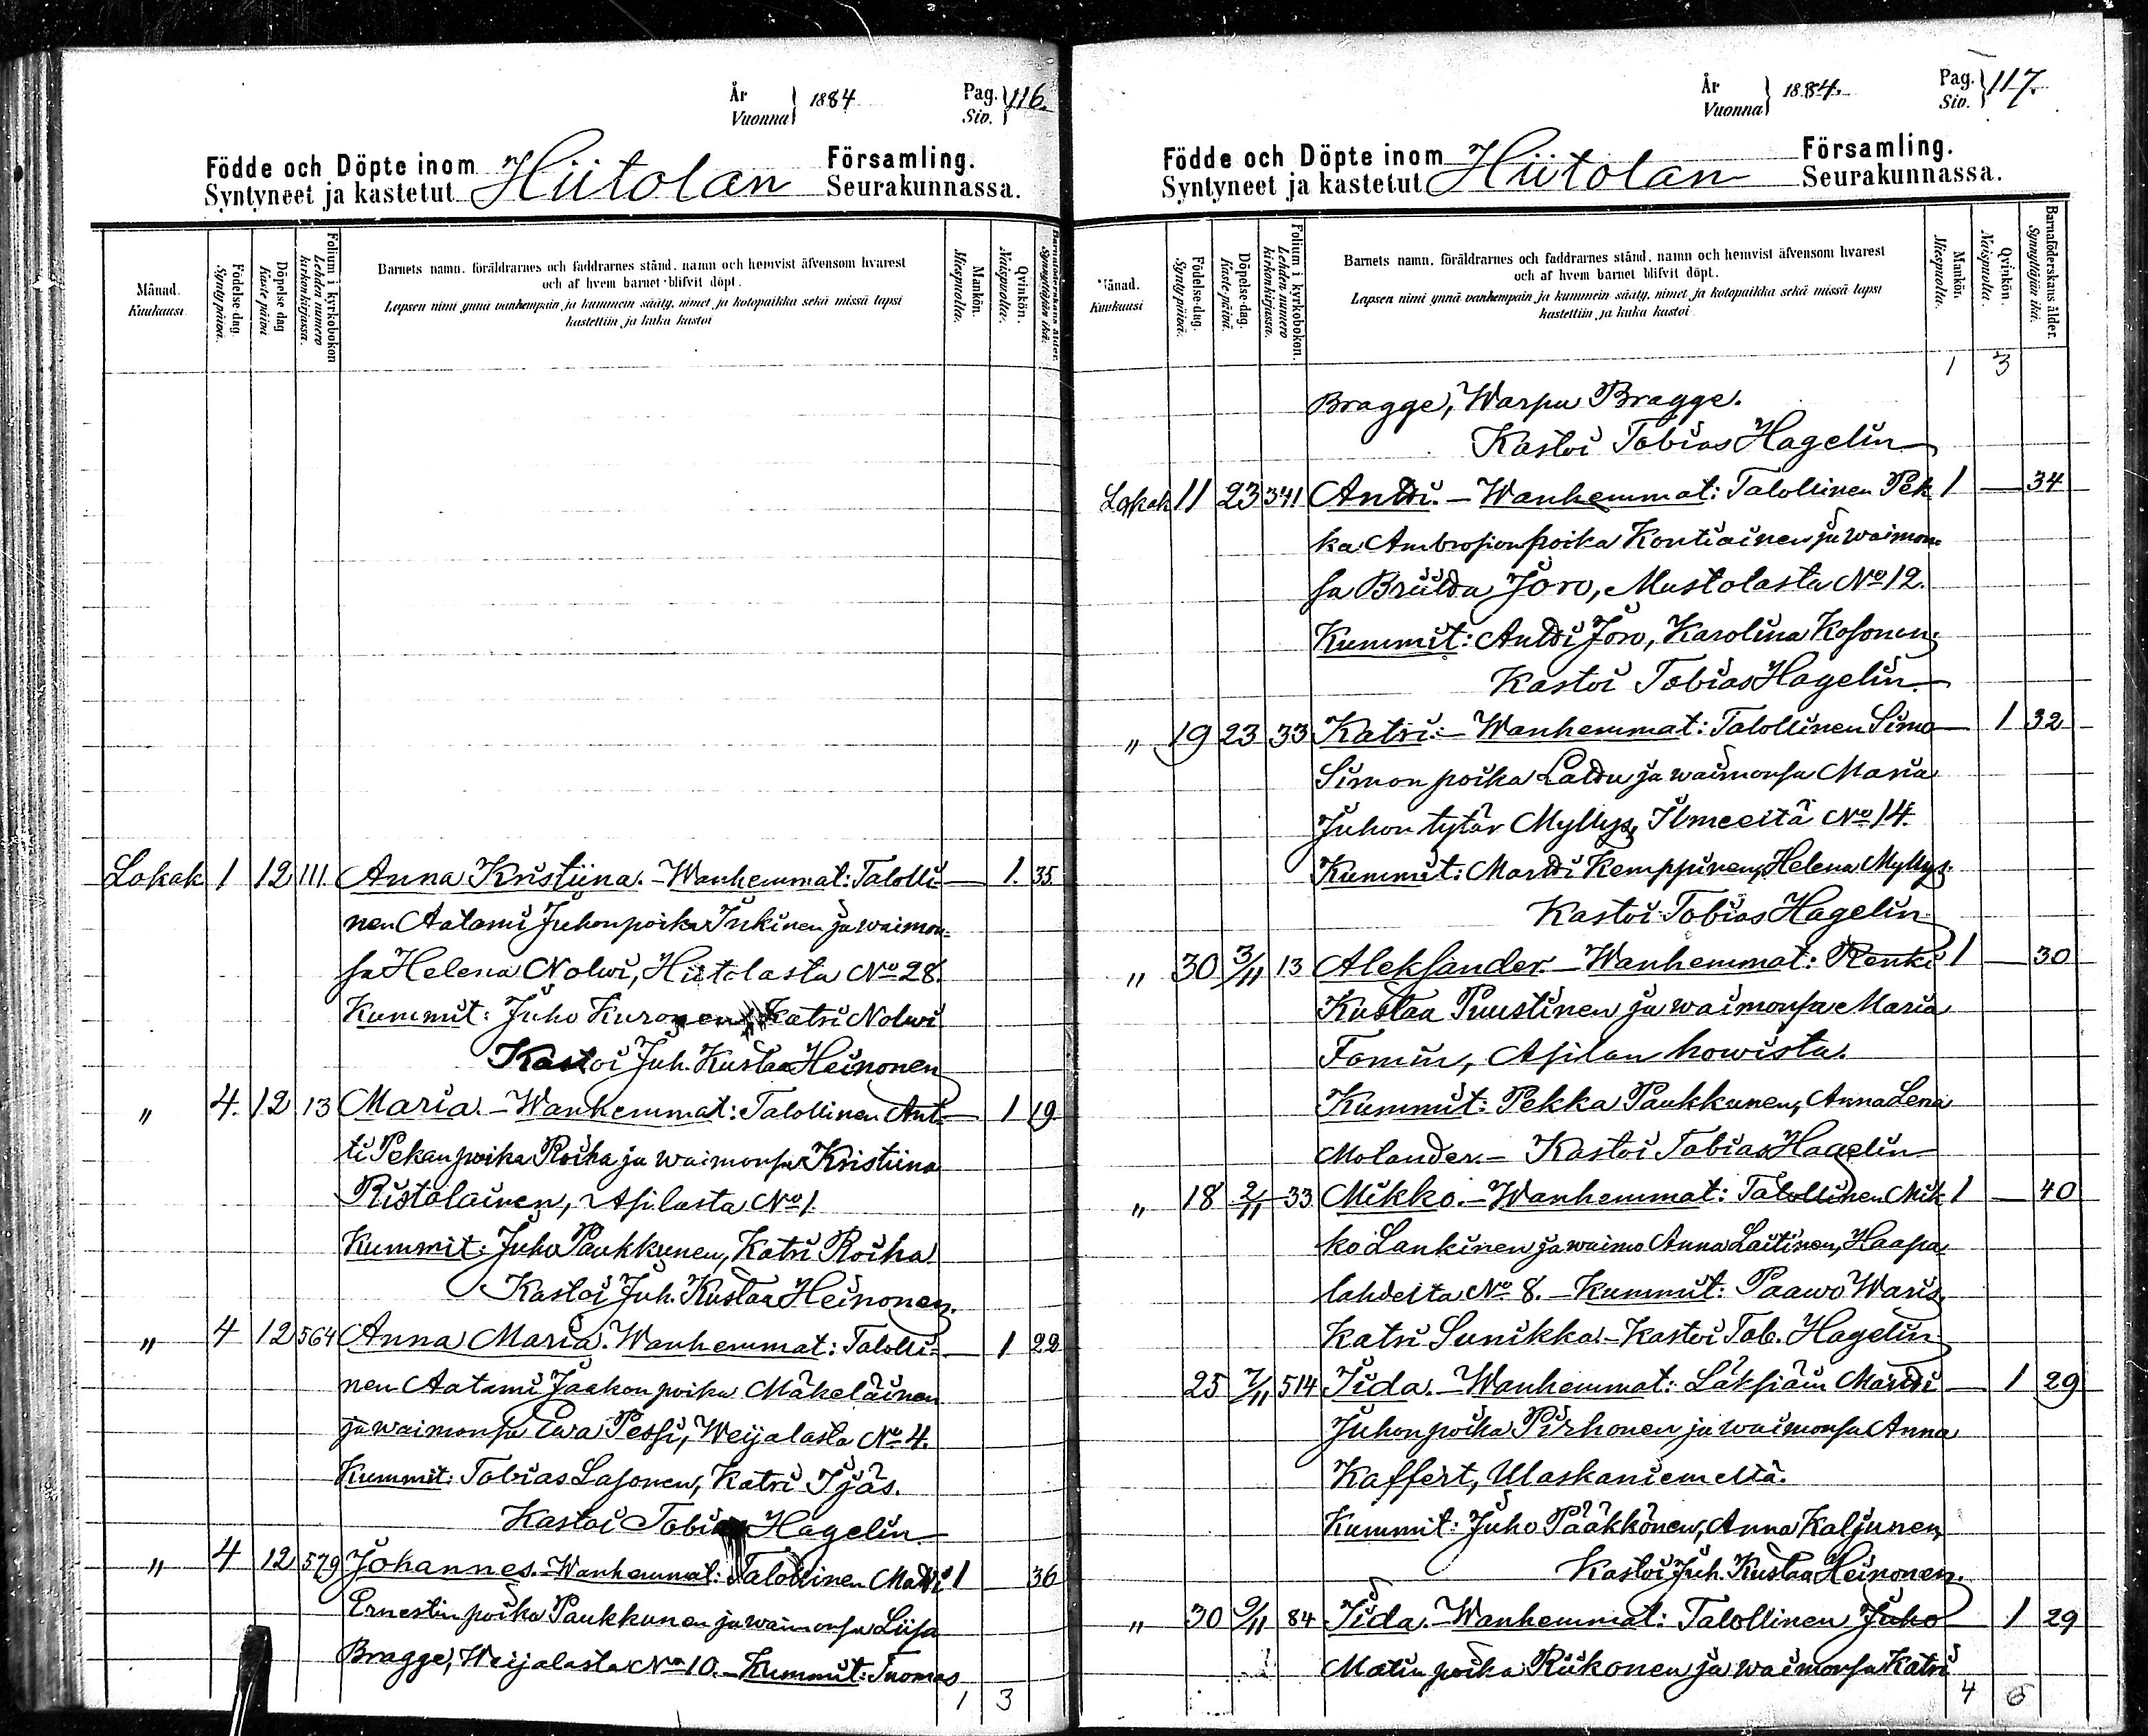 År
Vuonna } 1884
Pag.
Siv. } 116.
Födde och Döpte inom Hiitolan Församling.
Syntyneet ja kastetut Seurakunnassa.
Månad.
Kuukausi
Födelse-dag.
Syntypäivä.
Döpelse dag
Kaste päivä
Folium i kyrkobokon
Lehden numero
kirkonkirjassa.
Barnets namn. föräldrarnes och faddrarnes stånd. namn och hemvist äfvensom hvarest
och af hvem barnet blifvit döpt.
Lapsen nimi ynnä vanhempain ja kummein sääty, nimet, ja kotopaikka sekä missä lapsi
kastettiin ja kuka kastoi
Mankön.
Miespuolia.
Qvinkön.
Naispuolia.
Barnaföderskans ålder.
Synnyttäjän ikä.
Lokak 1 12 111. Anna Kristiina. - Wanhemmat: Talolli- — 1. 35.
nen Aatami Juhonpoika Inkinen ja waimon-
sa Helena Nolwi, Hiitolasta No 28.
Kummit: Juho Kuronen, Katri Nolwi
Kastoi Juh. Kustaa Heinonen
" 4. 12 13 Maria. - Wanhemmat: Talollinen Ant- — 1 19
ti Pekanpoika Roiha ja waimonsa Kristiina
Ristolainen, Asilasta No 1.
Kummit: Juho Paukkunen, Katri Roiha
Kastoi Juh. Kustaa Heinonen.
" 4 12 564 Anna Maria. Wanhemmat: Talolli- — 1 22
nen Aatami Jaakonpoika Mäkeläinen
ja waimonsa Ewa Pessi, Weijalasta No 4.
Kummit: Tobias Lasonen, Katri Ijäs.
Kastoi Tobias Hagelin
" 4 12 579 Johannes. - Wanhemmat: Talollinen Matti 1 36
Ernestin poika Paukkunen ja waimonsa Liisa
Bragge, Weijalasta No 10. - Kummit: Tuomas
1 3
År
Vuonna } 1884.
Pag.
Siv. } 117.
Födde och Döpte inom Hiitolan Församling.
Syntyneet ja kastetut Seurakunnassa.
Månad.
Kuukausi
Födelse-dag.
Syntypäivä.
Döpelse-dag.
Kaste-päivä.
Folium i kyrkobokon.
Lehden numero
kirkonkirjassa.
Barnets namn. föräldrarnes och faddrarnes stånd. namn och hemvist äfvensom hvarest
och af hvem barnet blifvit döpt.
Lapsen nimi ynnä vanhempain ja kummein sääty, nimet, ja kotopaikka sekä missä lapsi
kastettiin ja kuka kastoi
Mankön.
Miespuolia.
Qvinkön.
Naispuolia.
Barnaföderskans ålder.
Synnyttäjän ikä.
1 3
Bragge, Warpu Bragge.
Kastoi Tobias Hagelin
Lokak 11 23 341 Antti. - Wanhemmat: Talollinen Pek 1 — 34
ka Ambrosionpoika Kontiainen ja waimon-
sa Briitta Joro, Mustolasta No 12.
Kummit: Antti Joro, Karolina Kosonen.
Kastoi Tobias Hagelin
" 19 23 33 Katri. - Wanhemmat: Talollinen Simo — 1 32
Simonpoika Lattu ja waimonsa Maria
Juhon tytär Myllys, Ilmeeitä No 14.
Kummit: Martti Kemppinen, Helena Myllys.
Kastoi Tobias Hagelin
" 30 3/11 13 Aleksander. - Wanhemmat: Renki 1 — 30
Kustaa Puustinen ja waimonsa Maria
Fomin, Asilan howista.
Kummit: Pekka Paukkunen, Anna Lena
Molander. - Kastoi Tobias Hagelin
" 18 2/11 33 Mikko. - Wanhemmat: Talollinen Mik 1 — 40
ko Lankinen ja waimo Anna Laitinen, Haapa
lahdelta No 8. - Kummit: Paawo Waris,
Katri Sunikka. - Kastoi Tob. Hagelin
25 7/11 514 Iida. - Wanhemmat: Läksiäin Martti — 1 29
Juhonpoika Pirhonen ja waimonsa Anna
Kaffert, Ulaskaniemeltä.
Kummit: Juho Pääkkönen, Anna Kaljunen,
Kastoi Juh. Kustaa Heinonen.
" 30 9/11 84 Iida. - Wanhemmat: Talollinen Juho — 1 29
Matin poika Riikonen ja waimonsa Katri
4 6